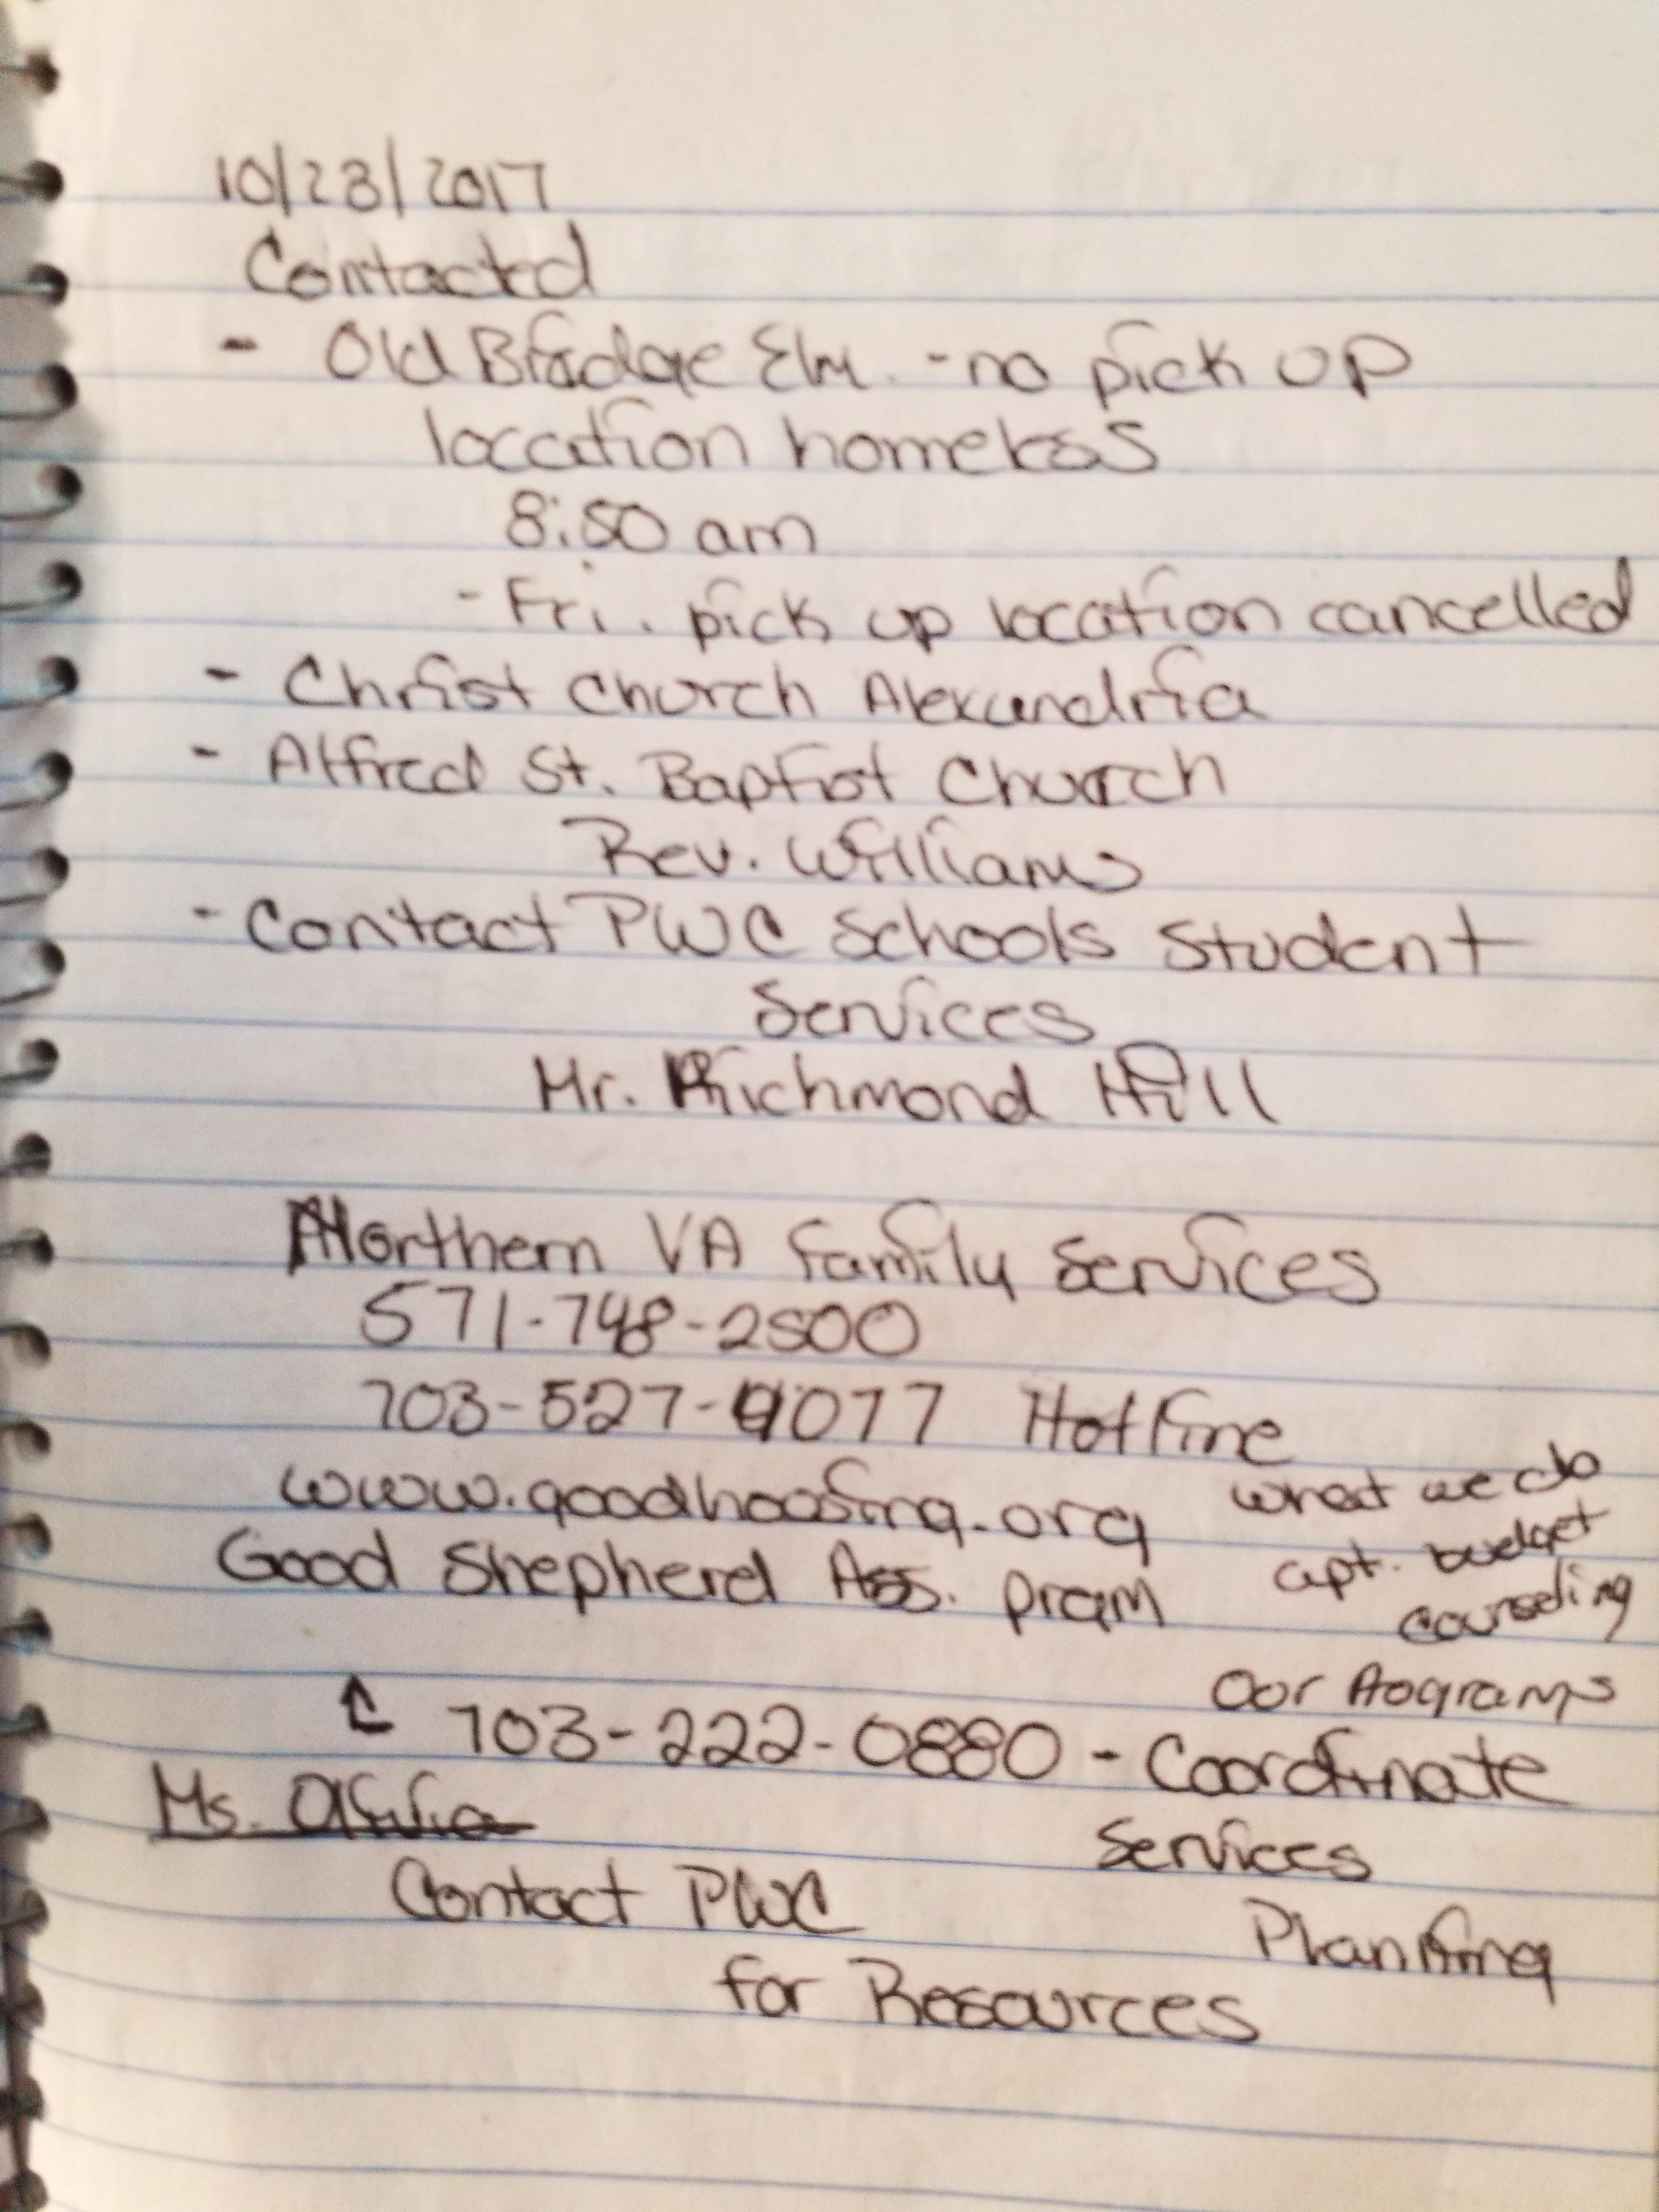 10/23/2017
Contacted
- Old Bridge Elm. - no pick up
location homeless
8:50 am
- Fri. pick up location cancelled
- Christ Church Alexandria
- Alfred St. Baptist Church
Rev. Williams
- Contact PWC Schools Student
Services
Mr. Richmond Hill
Northern VA Family Services
571-748-2500
703-527-4077 Hotline
www.goodhousing.org
what we do
apt. budget
counseling
Good Shepherd Ass. prgm
Our Programs
703-222-0880 - Coordinate
Services
Planning
Ms. Olivia
Contact PWC
for Resources